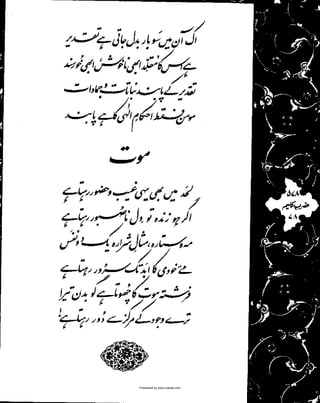 اک آن میں سو بار بدل جاتی ہے تقدیر
ہے اس کا مقلد ابھی ناخوش ابھی خورسند
تقدیر کے پابند نباتات و جمادات
مومن فقط احکام الٰہی کا ہے پابند
موت
لحد میں بھی یہی غیب و حضور رہتا ہے
اگر ہو زندہ تو دل ناصبور رہتا ہے
مہ و ستارہ مثال شرارہ یک دو نفس
مے خودی کا ابد تک سرور رہتا ہے
فرشتہ موت کا چھوتا ہے گو بدن تیرا
ترے وجود کے مرکز سے دور رہتا ہے!
۵۷۸
ضرب کلیم
۷۸
Presented by www.ziaraat.com